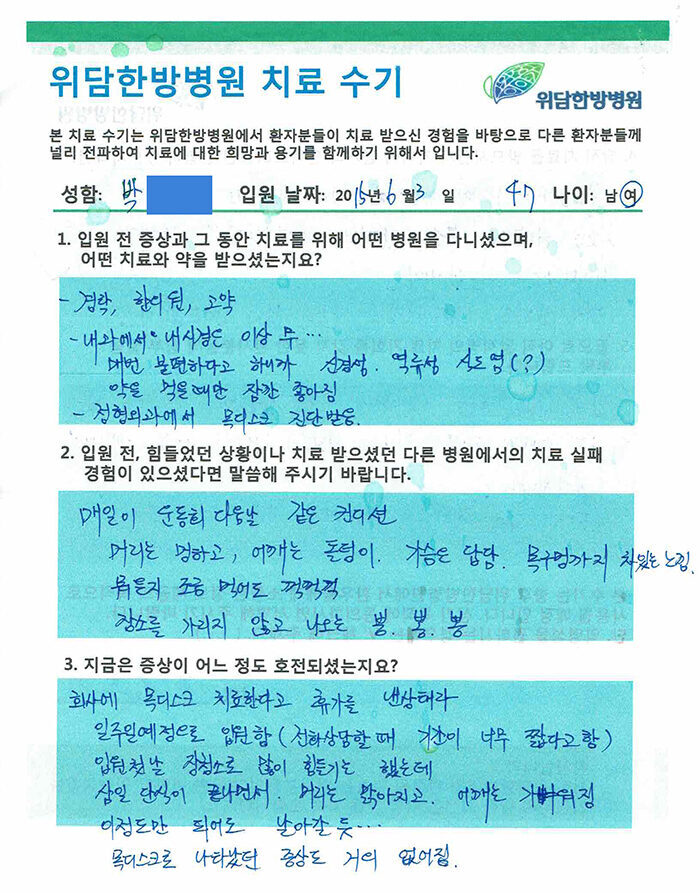 위담한방병원 치료 수기
위담한방병원
본 치료 수기는 위담한방병원에서 환자분들이 치료 받으신 경험을 바탕으로 다른 환자분들께
널리 전파하여 치료에 대한 희망과 용기를 함께하기 위해서 입니다.
성함: 박 입원 날짜: 2015년 6월 3일 47 나이: 남 여
1. 입원 전 증상과 그 동안 치료를 위해 어떤 병원을 다니셨으며,
어떤 치료와 약을 받으셨는지요?
- 경락, 한의원, 고약
- 내과에서는 내시경은 이상 무…
매번 불편하다고 하니까 신경성. 역류성 식도염(?)
약을 먹을때만 잠깐 좋아짐
- 정형외과에서 목디스크 진단받음.
2. 입원 전, 힘들었던 상황이나 치료 받으셨던 다른 병원에서의 치료 실패
경험이 있으셨다면 말씀해 주시기 바랍니다.
매일이 운동회 다음날 같은 컨디션
머리는 멍하고, 어깨는 돌덩이. 가슴은 답답. 목구멍까지 차있는 느낌.
뭐든지 조금 먹어도 꺽꺽꺽
장소를 가리지 않고 나오는 뽕. 뽕. 뽕
3. 지금은 증상이 어느 정도 호전되셨는지요?
회사에 목디스크 치료한다고 휴가를 낸상태라
일주일예정으로 입원함 (전화상담할 때 기간이 너무 짧다고 함)
입원첫날 장청소로 많이 힘들기는 했는데
삼일 단식이 끝나면서. 머리는 맑아지고. 어깨는 가벼워짐
이정도만 되어도 날아갈 듯…
목디스크로 나타났던 증상도 거의 없어짐.